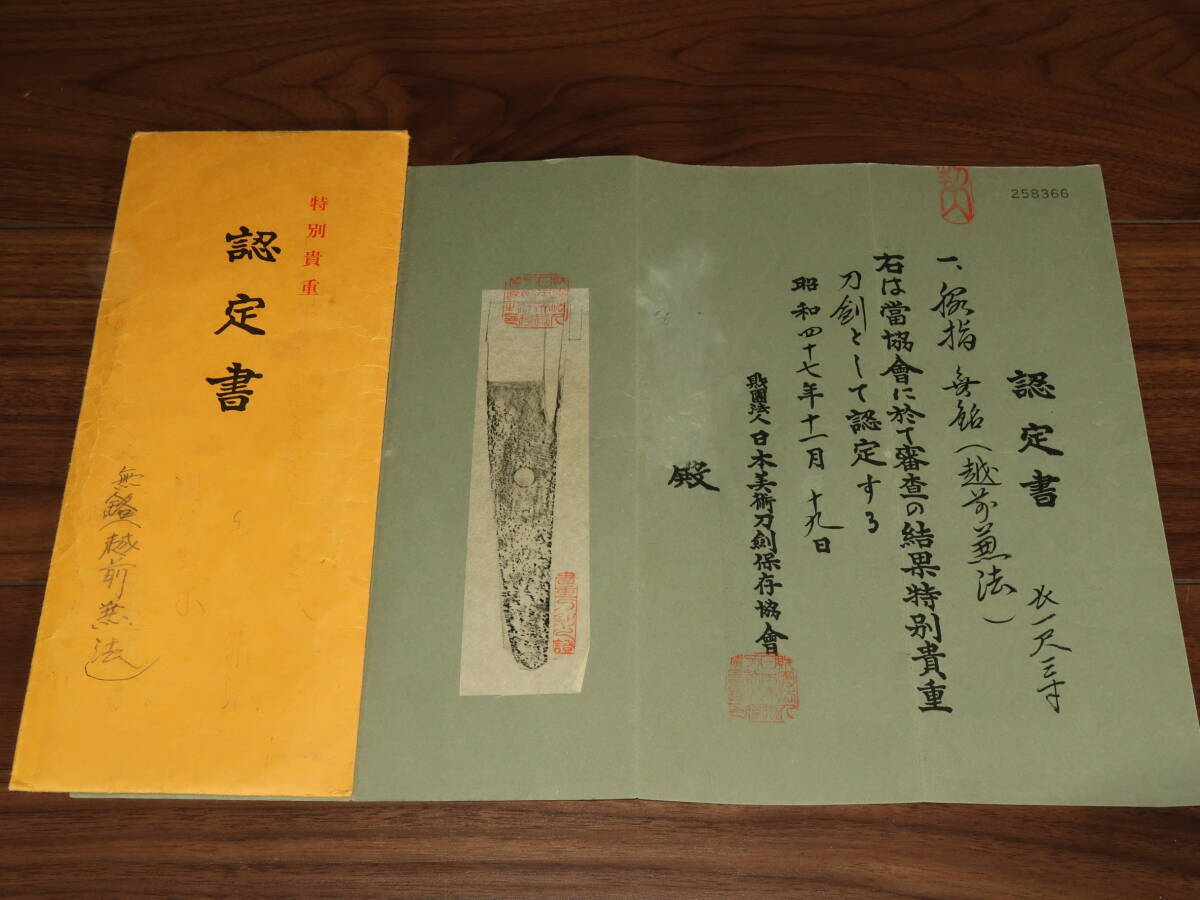 特別貴重
認定書
無銘(越前兼法)
258366
認定書
一、脇指 無銘(越前兼法)
長一尺三寸
右は當協會に於て審査の結果特別貴重
刀劍として認定する
昭和四十七年十一月 十九日
財團法人日本美術刀劍保存協會
殿